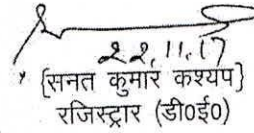 22.11.17
{सनत कुमार कश्यप}
रजिस्ट्रार (डी0ई0)